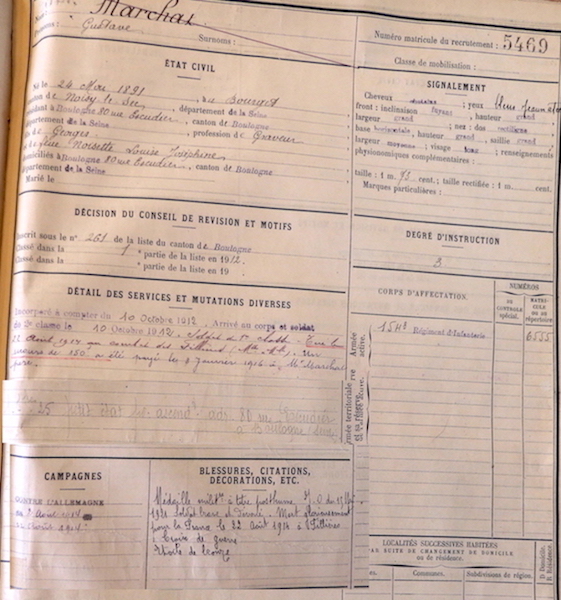 Marchal
Gustave
Surnoms :
Numéro matricule du recrutement : 5469
Classe de mobilisation :
ÉTAT CIVIL
Né le 24 Mai 1891, au Bourget
de Noisy-le-Sec, département de la Seine
à Boulogne 80 rue Escudier, canton de Boulogne
département de la Seine, profession de Graveur
de Georges
et de Noisette Louise Joséphine
domiciliés à Boulogne 80 rue Escudier, canton de Boulogne
département de la Seine
Marié le
SIGNALEMENT
Cheveux ; yeux bleus
front : inclinaison fuyant, hauteur grand
largeur grand ; nez : dos rectiligne
base horizontale, hauteur grand, saillie grand
largeur moyenne ; visage long ; renseignements
physionomiques complémentaires :
taille : 1 m. 73 cent. ; taille rectifiée : 1 m. cent.
Marques particulières :
DÉCISION DU CONSEIL DE REVISION ET MOTIFS
Inscrit sous le n° 261 de la liste du canton de Boulogne
Classé dans la 1 partie de la liste en 1912.
Classé dans la partie de la liste en 19
DEGRÉ D'INSTRUCTION
3
DÉTAIL DES SERVICES ET MUTATIONS DIVERSES
Incorporé à compter du 10 Octobre 1912. Arrivé au corps et soldat
de 2e classe le 10 Octobre 1912. Soldat de 1re classe Tué le
22 Août 1914 au combat de Fillières (Mthe Mlle) Un
secours de 150f a été payé le 8 Janvier 1916 à Mr Marchal
père.
25 petit état 80 rue Escudier
à Boulogne (Seine)
CORPS D'AFFECTATION.
NUMÉROS
DE CONTRÔLE spécial.
MATRICULE OU DE répertoire.
Armée active.
154e Régiment d'Infanterie
6555
armée territoriale
et sa réserve
CAMPAGNES
CONTRE L'ALLEMAGNE
Août 1914
Août 1914
BLESSURES, CITATIONS,
DÉCORATIONS, ETC.
Médaille militre à titre posthume J.O du
Soldat brave et dévoué. Mort glorieusement
pour la France le 22 Août 1914 à Fillières
Croix de guerre
Etoile de bronze
LOCALITÉS SUCCESSIVES HABITÉES
PAR SUITE DE CHANGEMENT DE DOMICILE
ou de résidence.
Communes.
Subdivisions de région.
D. Domicile.
R. Résidence.